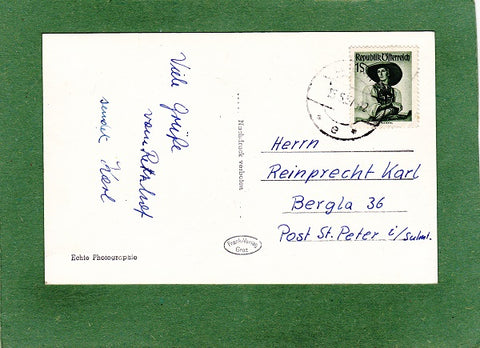 Viele Grüße
vom
sendet Karl
Echte Photographie
Nachdruck verboten
Frank-Verlag
Graz
Republik Österreich
1S
e
Herrn
Reinprecht Karl
Bergla 36
Post St. Peter i/Sulmt.